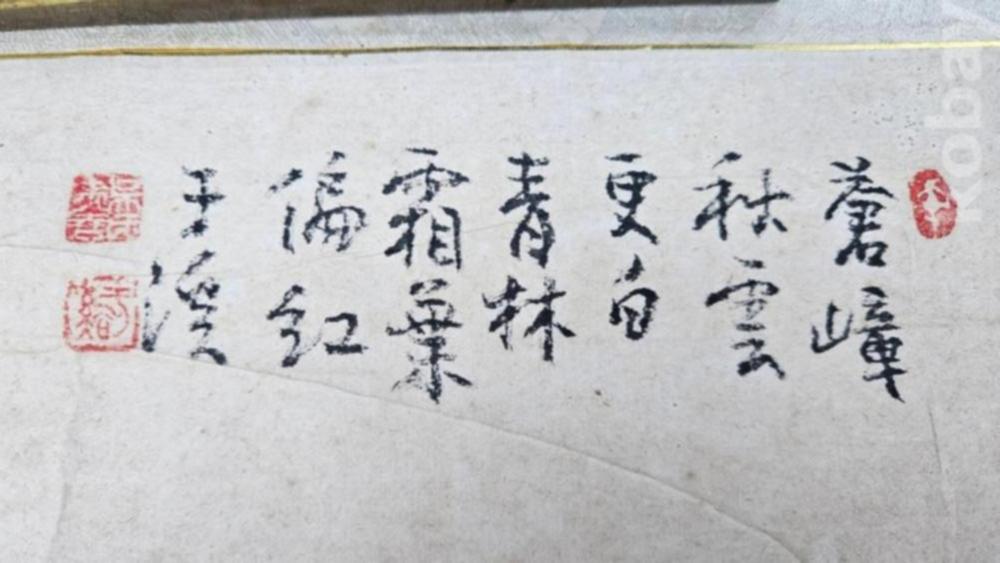 蒼嶂
秋雲
更白
青林
霜葉
偏紅
于溪
kobay